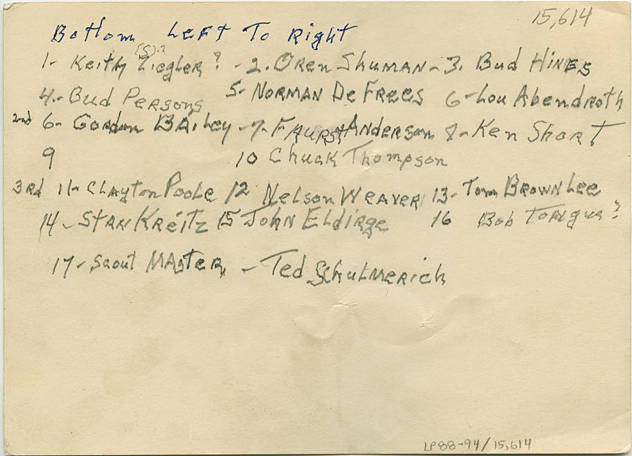 15,614
Bottom Left To Right
(S)?
1- Keith Ziegler? - 2. Oren Shuman - 3. Bud Hines
4- Bud Persons 5- Norman DeFrees 6- Lou Abendroth
2nd 6- Gordon Bailey - 7- Faurst Anderson 8- Ken Short
9 10 Chuck Thompson
3rd 11- Clayton Poole 12 Nelson Weaver 13- Tom BrownLee
14- Stan Kreitz 15 John Eldirge 16 Bob Toregus?
17- Scout Master - Ted Schulmerich
LP88-94/15,614